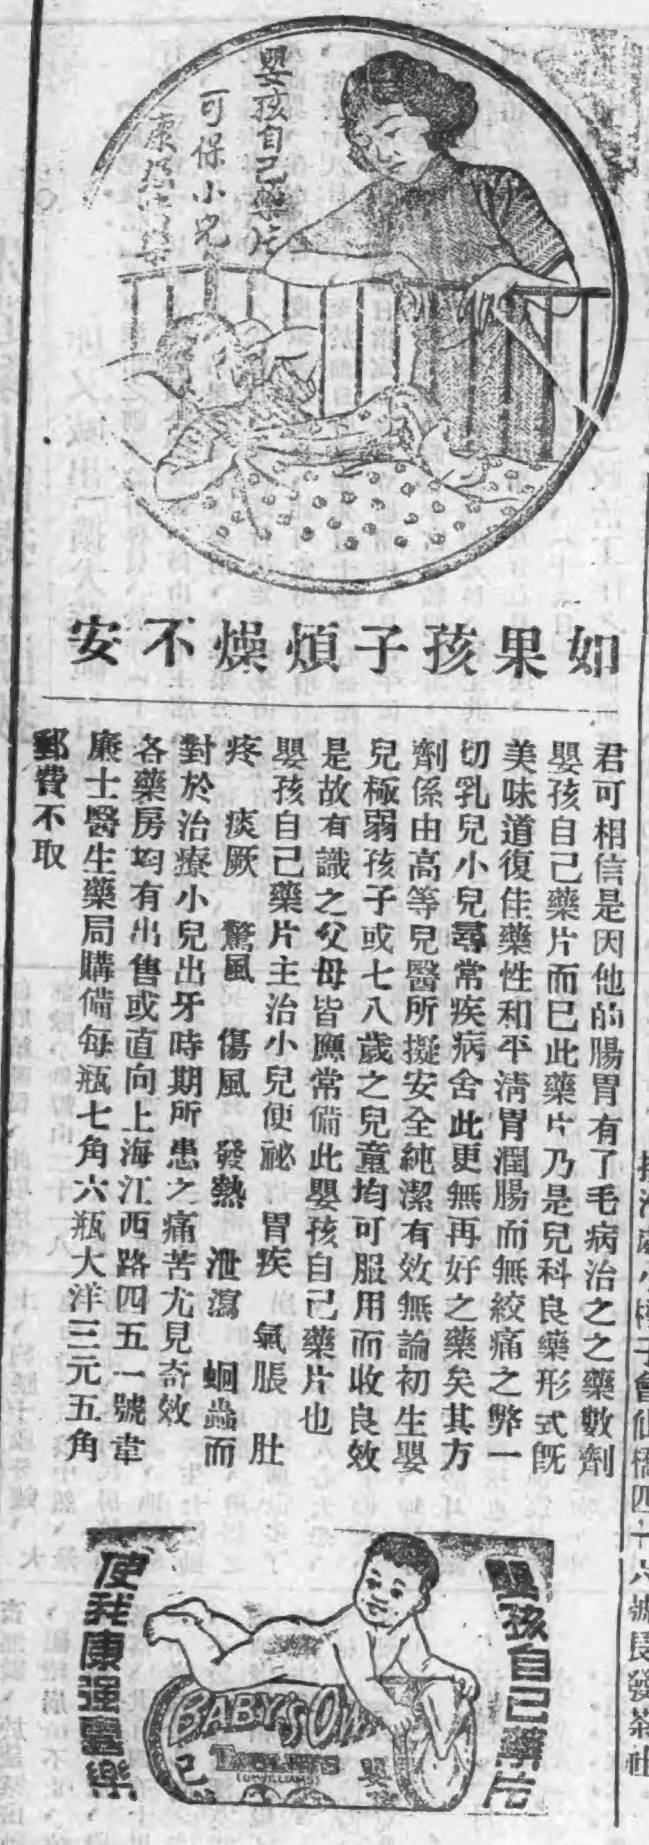 嬰孩自己藥片
可保小兒
康強喜樂
如果孩子煩燥不安
君可相信是因他的腸胃有了毛病治之之藥數劑
嬰孩自己藥片而已此藥片乃是兒科良藥形式旣
美味道復佳藥性和平淸胃潤腸而無絞痛之弊一
切乳兒小兒尋常疾病舍此更無再好之藥矣其方
劑係由高等兒醫所擬安全純潔有效無論初生嬰
兒極弱孩子或七八歲之兒童均可服用而收良效
是故有識之父母皆應常備此嬰孩自己藥片也
嬰孩自己藥片主治小兒便祕 胃疾 氣脹 肚
疼 痰厥 驚風 傷風 發熱 泄瀉 蛔蟲而
對於治療小兒出牙時期所患之痛苦尤見奇效
各藥房均有出售或直向上海江西路四五一號韋
廉士醫生藥局購備每瓶七角六瓶大洋三元五角
郵費不取
嬰孩自己藥片
BABY'S OWN
TABLETS
(DR. WILLIAMS)
己 嬰
使我康强喜樂
會仙橋四十六號長發茶社